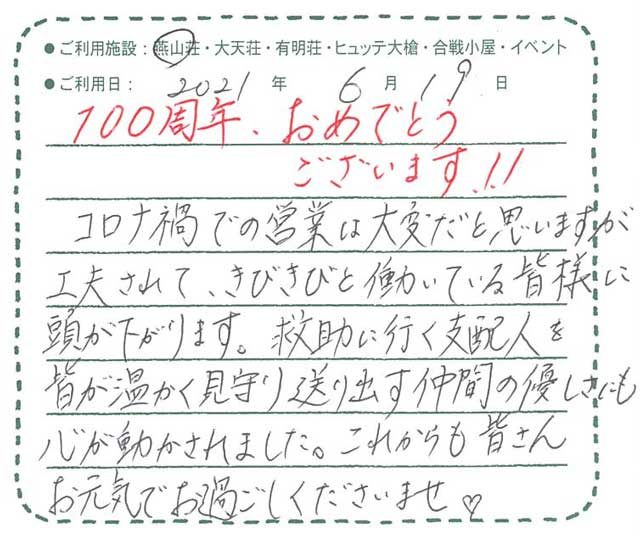 ●ご利用施設：燕山荘・大天荘・有明荘・ヒュッテ大槍・合戦小屋・イベント
●ご利用日： 2021 年 6 月 19 日
100周年、おめでとう
ございます!!
コロナ禍での営業は大変だと思いますが
工夫されて、きびきびと働いている皆様に
頭が下がります。救助に行く支配人を
皆が温かく見守り送り出す仲間の優しさにも
心が動かされました。これからも皆さん
お元気でお過ごしくださいませ♡